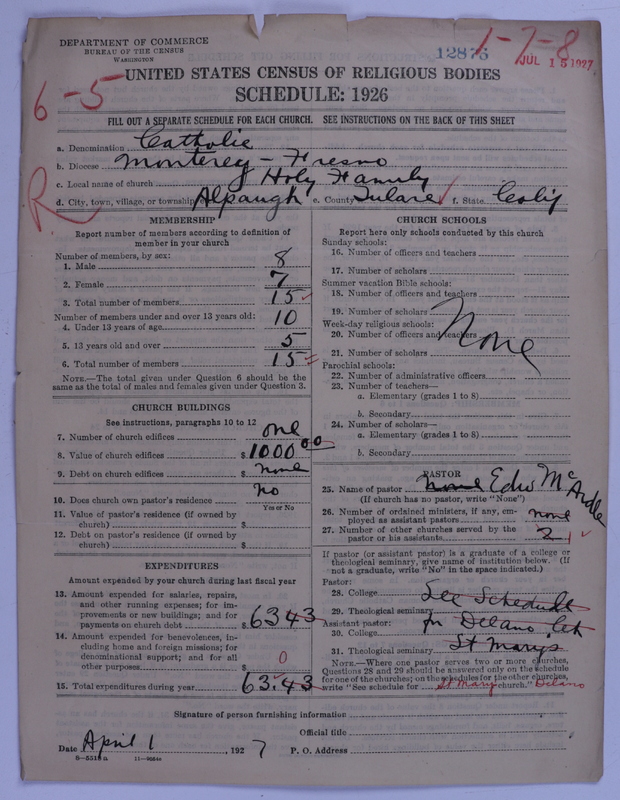 DEPARTMENT OF COMMERCE
BUREAU OF THE CENSUS
WASHINGTON
12876
1-7-8
JUL 15 1927
6-5
UNITED STATES CENSUS OF RELIGIOUS BODIES
SCHEDULE: 1926
FILL OUT A SEPARATE SCHEDULE FOR EACH CHURCH. SEE INSTRUCTIONS ON THE BACK OF THIS SHEET
a. Denomination Catholic
b. Diocese Monterey - Fresno
c. Local name of church Holy Family
d. City, town, village, or township Alpaugh e. County Tulare f. State Calif
R
MEMBERSHIP
Report number of members according to definition of
member in your church
Number of members, by sex:
1. Male 8
2. Female 7
3. Total number of members 15
Number of members under and over 13 years old:
4. Under 13 years of age 10
5. 13 years old and over 5
6. Total number of members 15
NOTE.—The total given under Question 6 should be the
same as the total of males and females given under Question 3.
CHURCH BUILDINGS
See instructions, paragraphs 10 to 12
7. Number of church edifices one
8. Value of church edifices $ 1000 00
9. Debt on church edifices $ none
10. Does church own pastor's residence No
Yes or No
11. Value of pastor's residence (if owned by
church) $
12. Debt on pastor's residence (if owned by
church) $
EXPENDITURES
Amount expended by your church during last fiscal year
13. Amount expended for salaries, repairs,
and other running expenses; for im-
provements or new buildings; and for
payments on church debt $ 63 43
14. Amount expended for benevolences, in-
cluding home and foreign missions; for
denominational support; and for all
other purposes $ 0
15. Total expenditures during year 63.43
CHURCH SCHOOLS
Report here only schools conducted by this church
Sunday schools:
16. Number of officers and teachers
17. Number of scholars
Summer vacation Bible schools:
18. Number of officers and teachers
19. Number of scholars
Week-day religious schools:
20. Number of officers and teachers
None
21. Number of scholars
Parochial schools:
22. Number of administrative officers
23. Number of teachers—
a. Elementary (grades 1 to 8)
b. Secondary
24. Number of scholars—
a. Elementary (grades 1 to 8)
b. Secondary
PASTOR
25. Name of pastor none Edw McArdle
(If church has no pastor, write "None")
26. Number of ordained ministers, if any, em-
ployed as assistant pastors none
27. Number of other churches served by the
pastor or his assistants 2 1
If pastor (or assistant pastor) is a graduate of a college or
theological seminary, give name of institution below. (If
not a graduate, write "No" in the space indicated.)
Pastor:
28. College See Schedule
29. Theological seminary
for Delano
Assistant pastor:
30. College
31. Theological seminary St Mary's
NOTE.—Where one pastor serves two or more churches,
Questions 28 and 29 should be answered only on the schedule
for one of the churches; on the schedules for the other churches,
write "See schedule for St Mary church." Delano
Signature of person furnishing information
Official title
Date April 1, 1927 P. O. Address
8-5518a 11-9564c